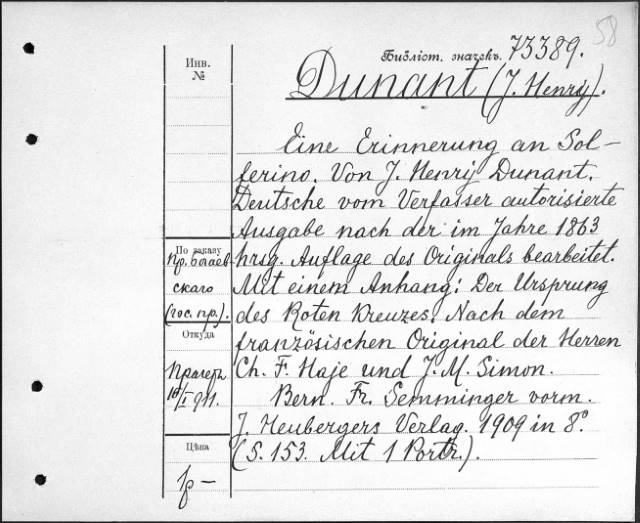 58
Библіот. значекъ. 73389.
Инв.
№
Dunant (J. Henry).
Eine Erinnerung an Sol-
ferino. Von J. Henry Dunant.
Deutsche vom Verfasser autorisierte
Ausgabe nach der im Jahre 1863
hrsg. Auflage des Originals bearbeitet.
Mit einem Anhang: Der Ursprung
des Roten Kreuzes. Nach dem
französischen Original der Herren
Ch. F. Haje und J. M. Simon.
Bern. Fr. Semminger vorm.
J. Heubergers Verlag. 1909 in 8°
(S. 153. Mit 1 Portr.).
По заказу
Пр. Богаев
скаго
(гос. пр.).
Откуда
Прагеръ
10/I 911.
Цѣна
1р –